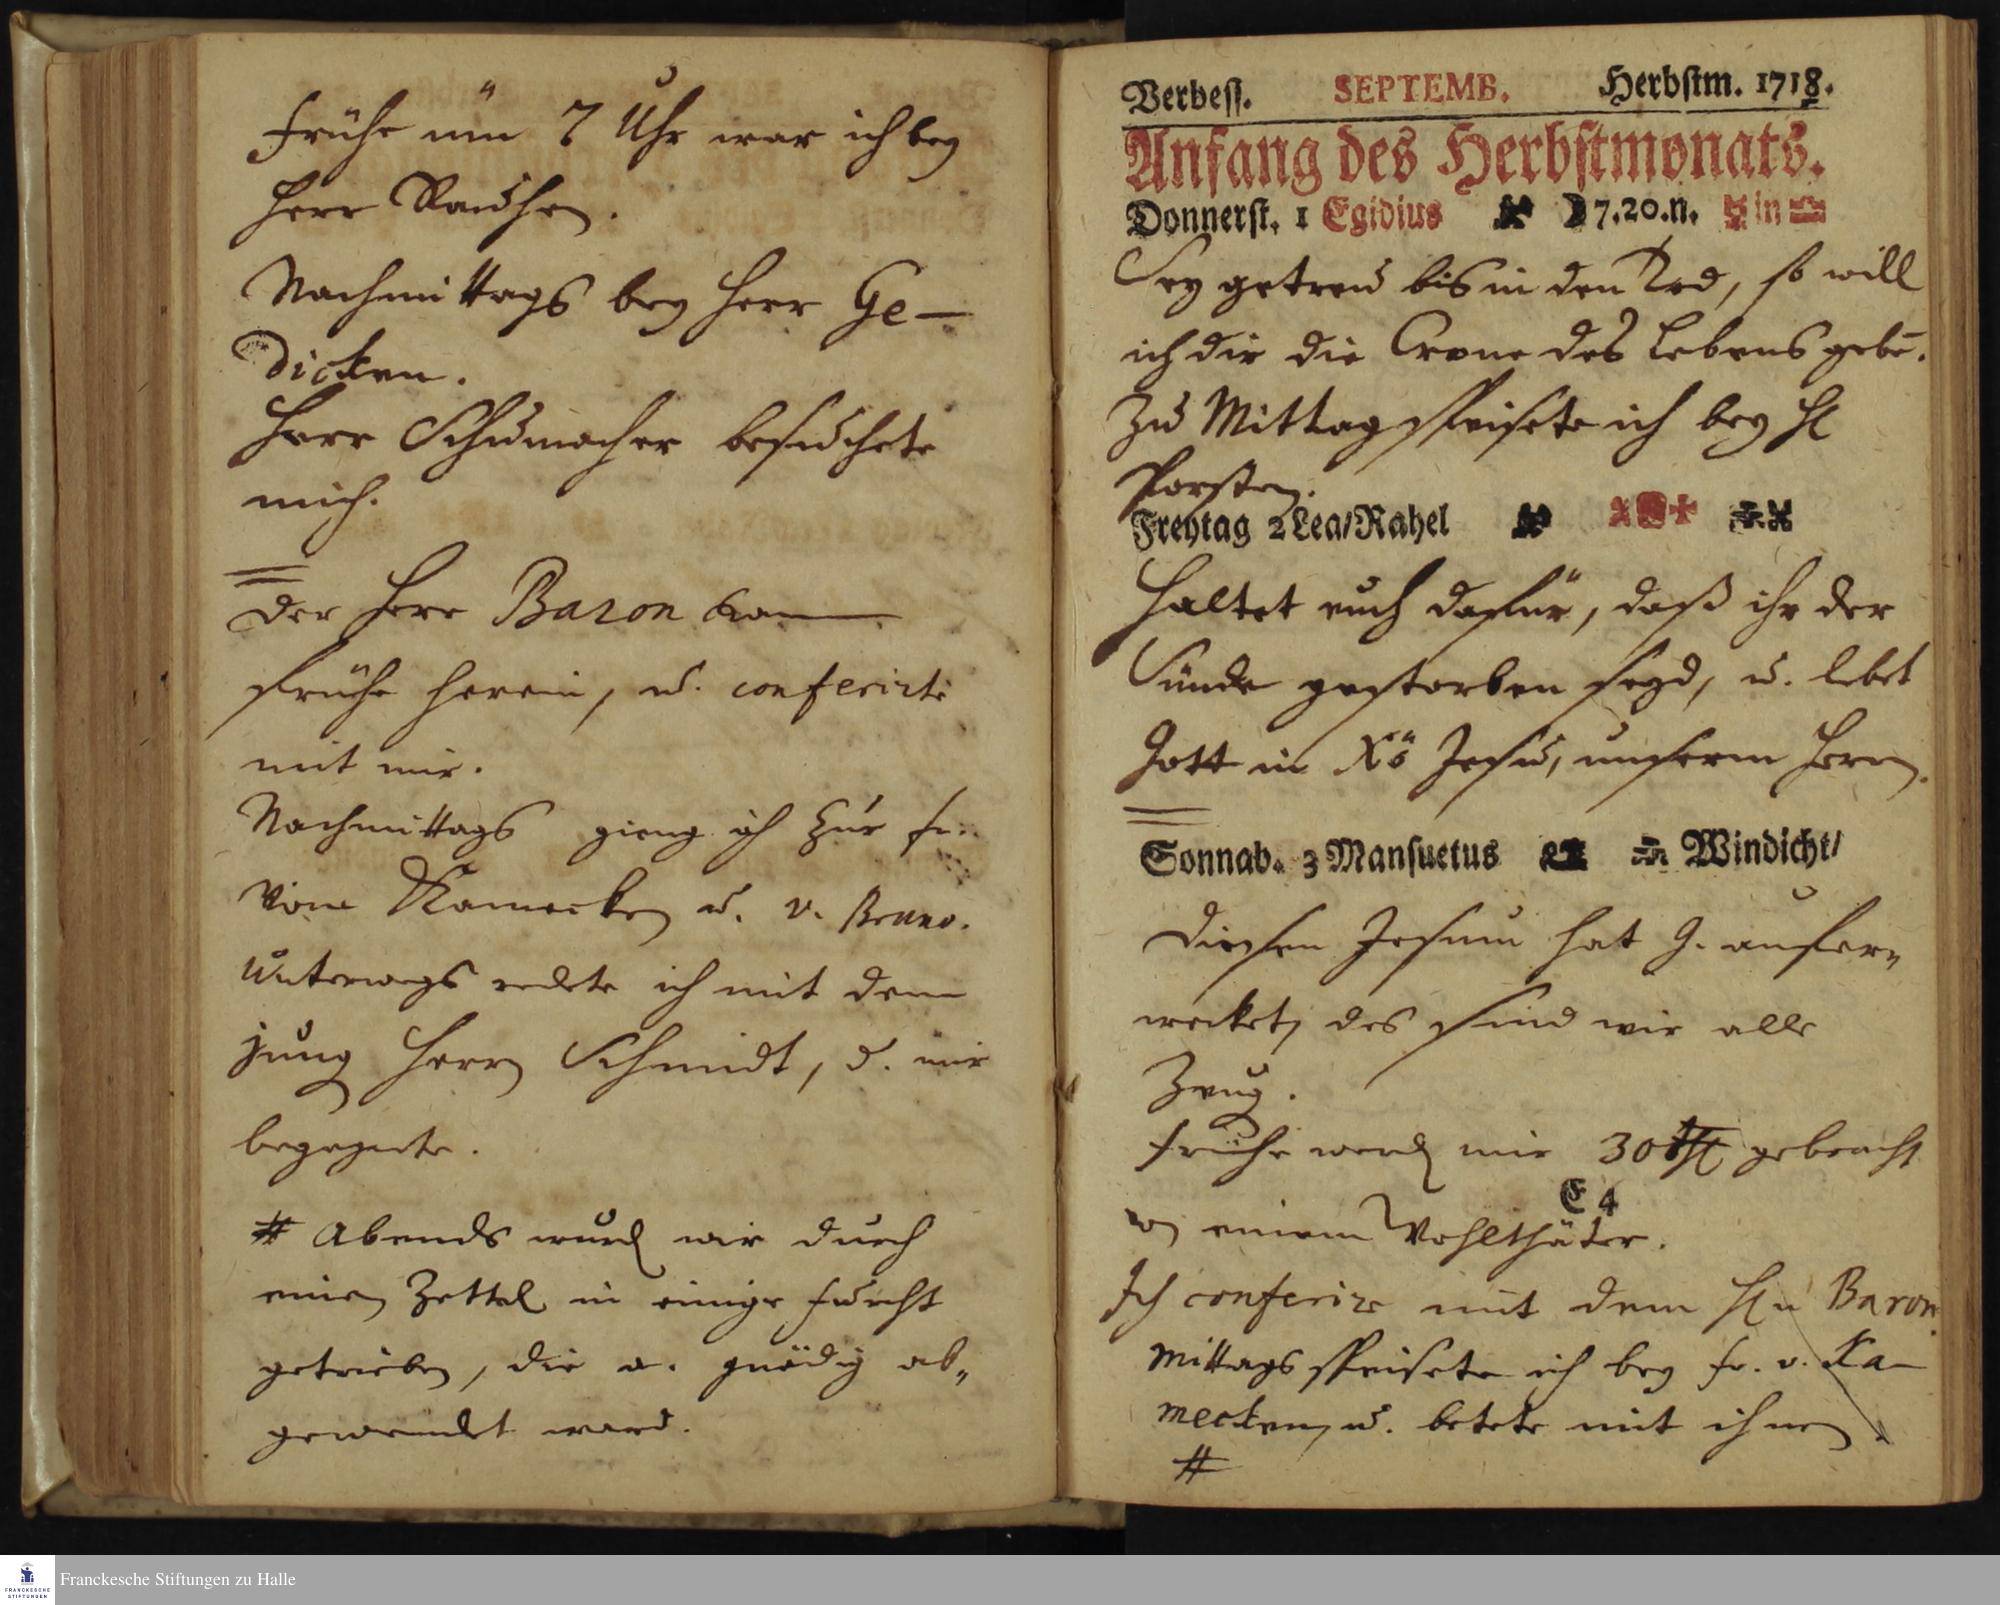 Frühe um 7 Uhr war ich bey
Herr Rauschen.
Nachmittags bey Herr Ge-
dicken.
Herr Schumacher besuchete
mich.
Der Herr Baron kam
frühe herein, u. conferirte
mit mir.
Nachmittags gieng ich zur Fr.
von Kamecken u. v.
Unterwegs redete ich mit dem
jung Herrn Schmidt, d. mir
begegnete.
# Abends wurd wir durch
einen Zettel in einige Furcht
getrieben, die a. gnädig ab-
gewendet ward.
Verbess. SEPTEMB. Herbstm. 1718.
Anfang des Herbstmonats.
Donnerst. 1 Egidius 7.20.n. in
Sey getreu bis in den Tod, so will
ich dir die Crone des Lebens gebē.
Zu Mittag speisete ich bey H
Porsten.
Freytag 2 Lea/Rahel
Haltet euch dafür, daß ihr der
Sünde gestorben seyd, u. lebet
Gott in Xo Jesu, unserm Herrn.
Sonnab. 3 Mansuetus Windicht/
Diesen Jesum hat G. aufer-
wecket, des sind wir alle
Zeug.
Frühe werd mir 30 gebracht
E 4
von einem Wohlthäter.
Ich conferire mit dem Hn Baron.
Mittags speisete ich bey Fr. v. Ka-
mecken, u. betete mit ihnen.
#
Franckesche Stiftungen zu Halle
FRANCKESCHE
STIFTUNGEN